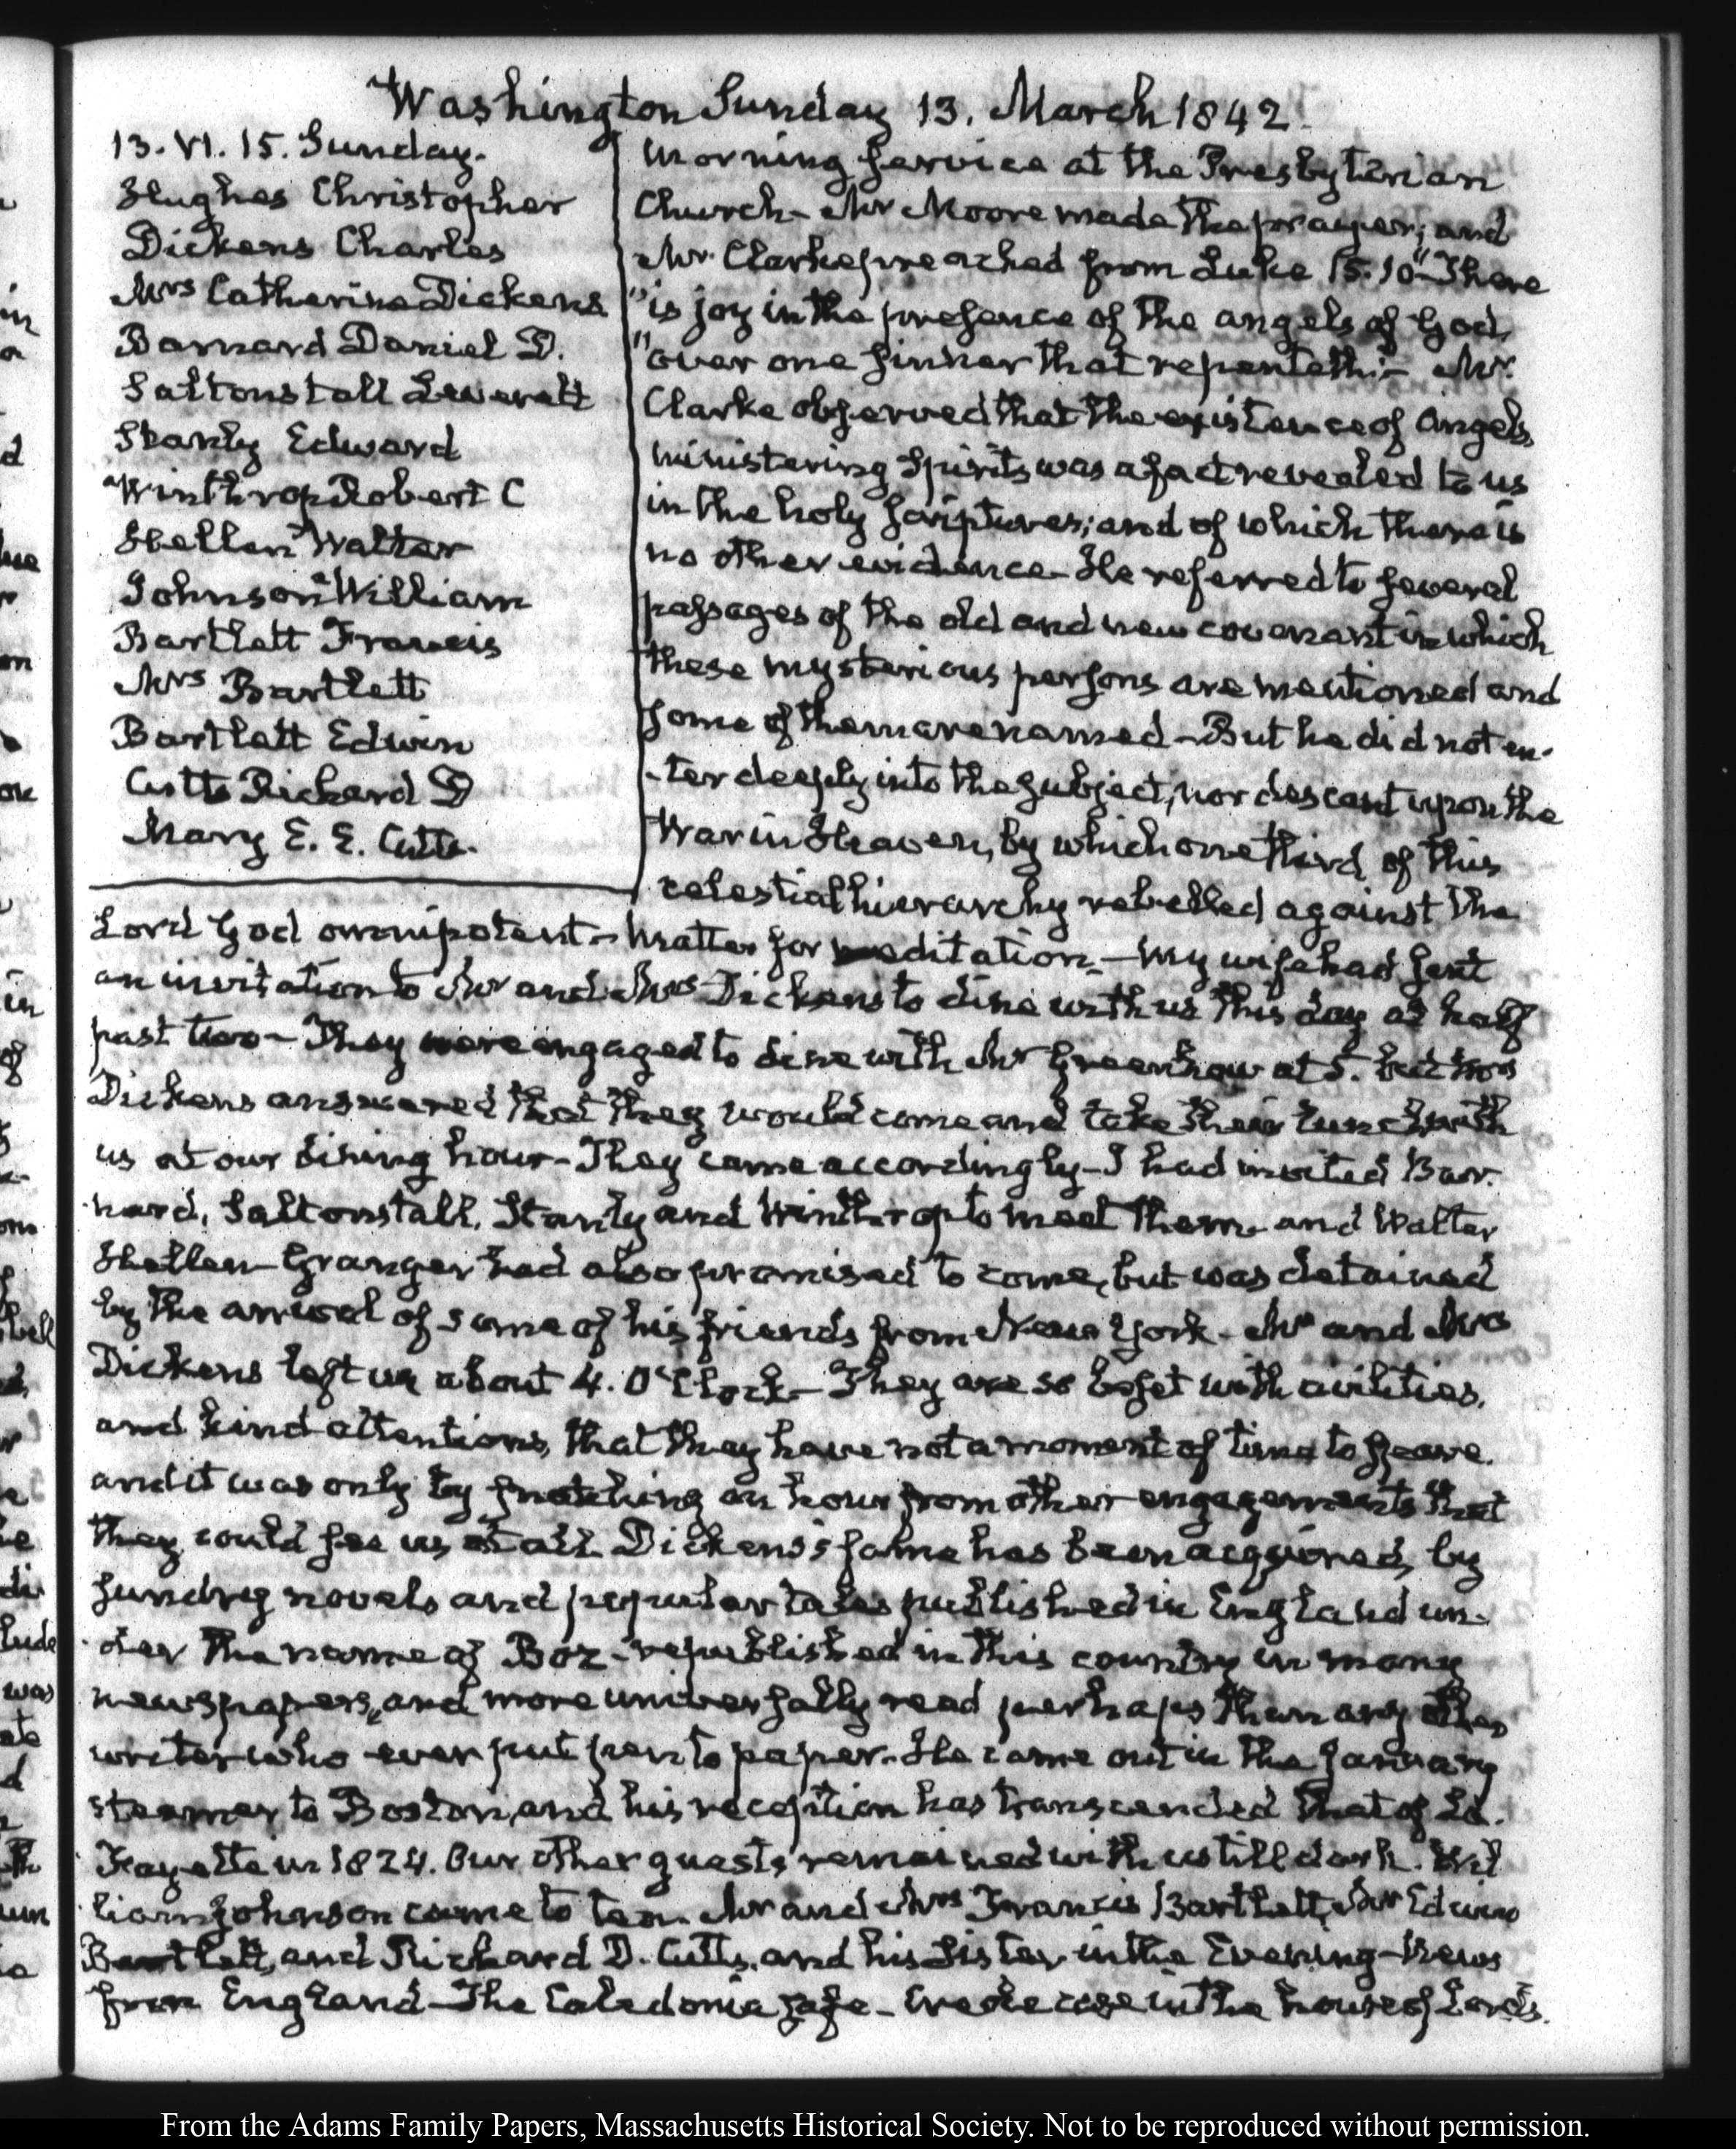 Washington Sunday 13. March 1842.
13. VI. 15. Sunday.
Hughes Christopher
Dickens Charles
Mrs Catherine Dickens
Barnard Daniel D.
Saltonstall Leverett
Stanly Edward
Winthrop Robert C
Hellen Walter
Johnson William
Bartlett Francis
Mrs Bartlett
Bartlett Edwin
Cutts Richard D
Mary E. E. Cutts.
Morning service at the Presbyterian
Church- Mr Moore made the prayer; and
Mr. Clarke preached from Luke 15.10 "There
"is joy in the presence of the angels of God,
"over one sinner that repenteth:- Mr.
Clarke observed that the existence of Angels,
ministering Spirits was a fact revealed to us
in the holy scriptures; and of which there is
no other evidence- He referred to several
passages of the old and new covenant in which
these mysterious persons are mentioned and
some of them are named- But he did not en-
-ter deeply into the subject, nor descant upon the
War in Heaven, by which one third of this
celestial hierarchy rebelled against the
Lord God omnipotent- Matter for meditation.- My wife had sent
an invitation to Mr and Mrs Dickens to dine with us this day at half
past two- They were engaged to dine with Mr Greenhow at 5. but Mrs
Dickens answered that they would come and take their lunch with
us at our dining hour- They came accordingly- I had invited Bar-
nard, Saltonstall, Stanly and Winthrop to meet them and Walter
Hellen- Granger had also promised to come, but was detained
by the arrival of some of his friends from New York- Mr and Mrs
Dickens left us about 4. O'Clock- They are so beset with civilities,
and kind attentions, that they have not a moment of time to spare.
and it was only by snatching an hour from other engagements that
they could see us at all. Dickens's fame has been acquired, by
sundry novels and popular tales published in England un-
-der the name of Boz- republished in this country in many
newspapers, and more universally read perhaps than any other
writer who ever put pen to paper- He came out in the January
steamer to Boston, and his reception has transcended that of La.
Fayette in 1824. Our other guests, remained with us till dark. Wil
liam Johnson came to tea. Mr and Mrs Francis Bartlett, Mr Edwin
Bartlett, and Richard D. Cutts, and his Sister in the Evening- News
from England- The Caledonia safe- Creole case in the house of Lords.
From the Adams Family Papers, Massachusetts Historical Society. Not to be reproduced without permission.